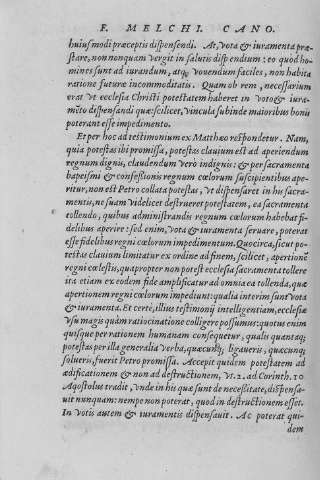 F. MELCHI. CANO.
huiusmodi præceptis dispensendi. At, vota & iuramenta præ-
stare, non nonquam vergit in salutis dispendium: eo quod ho-
mines sunt ad iurandum, atq; vouendum faciles, non habita
ratione futuræ incommoditatis. Quam ob rem, necessarium
erat vt ecclesia Christi potestatem haberet in voto & iura-
mẽto dispensandi quæ scilicet, vincula subinde maioribus bonis
poterant esse impedimento.
Et per hoc ad testimonium ex Matthæo respondetur. Nam,
quia potestas ibi promissa, potestas clauium est ad aperiendum
regnum dignis, claudendum verò indignis: & per sacramenta
baptismi & confessionis regnum cœlorum suscipientibus ape-
ritur, non est Petro collata potestas, vt dispensaret in his sacra-
mentis, ne suam videlicet destrueret potestatem, ea sacramenta
tollendo, quibus administrandis regnum cœlorum habebat fi-
delibus aperire: sed enim, vota & iuramenta seruare, poterat
esse fidelibus regni cœlorum impedimentum. Quocirca, sicut po-
testas clauium limitatur ex ordine ad finem, scilicet, apertionẽ
regni cœlestis, quapropter non potest ecclesia sacramenta tollere
ita etiam ex eodem fide amplificatur ad omnia ea tollenda, quæ
apertionem regni cœlorum impediunt: qualia interim sunt vota
& iuramenta. Et certè, illius testimonij intelligentiam, ecclesiæ
vsu magis quàm ratiocinatione colligere possumus: quotus enim
quisque per rationem humanam consequetur, qualis quantaq;
potestas per illa generalia verba, quæcunq; ligaueris, quæcunq;
solueris, fuerit Petro promissa. Accepit quidem potestatem ad
ædificationem & non ad destructionem, vt. 2. ad Corinth. 10
Apostolus tradit, vnde in his quæ sunt de necessitate, dispensa-
uit nunquam: nempe non poterat, quod in destructionem esset.
In votis autem & iuramentis dispensauit. Ac poterat qui-
dem